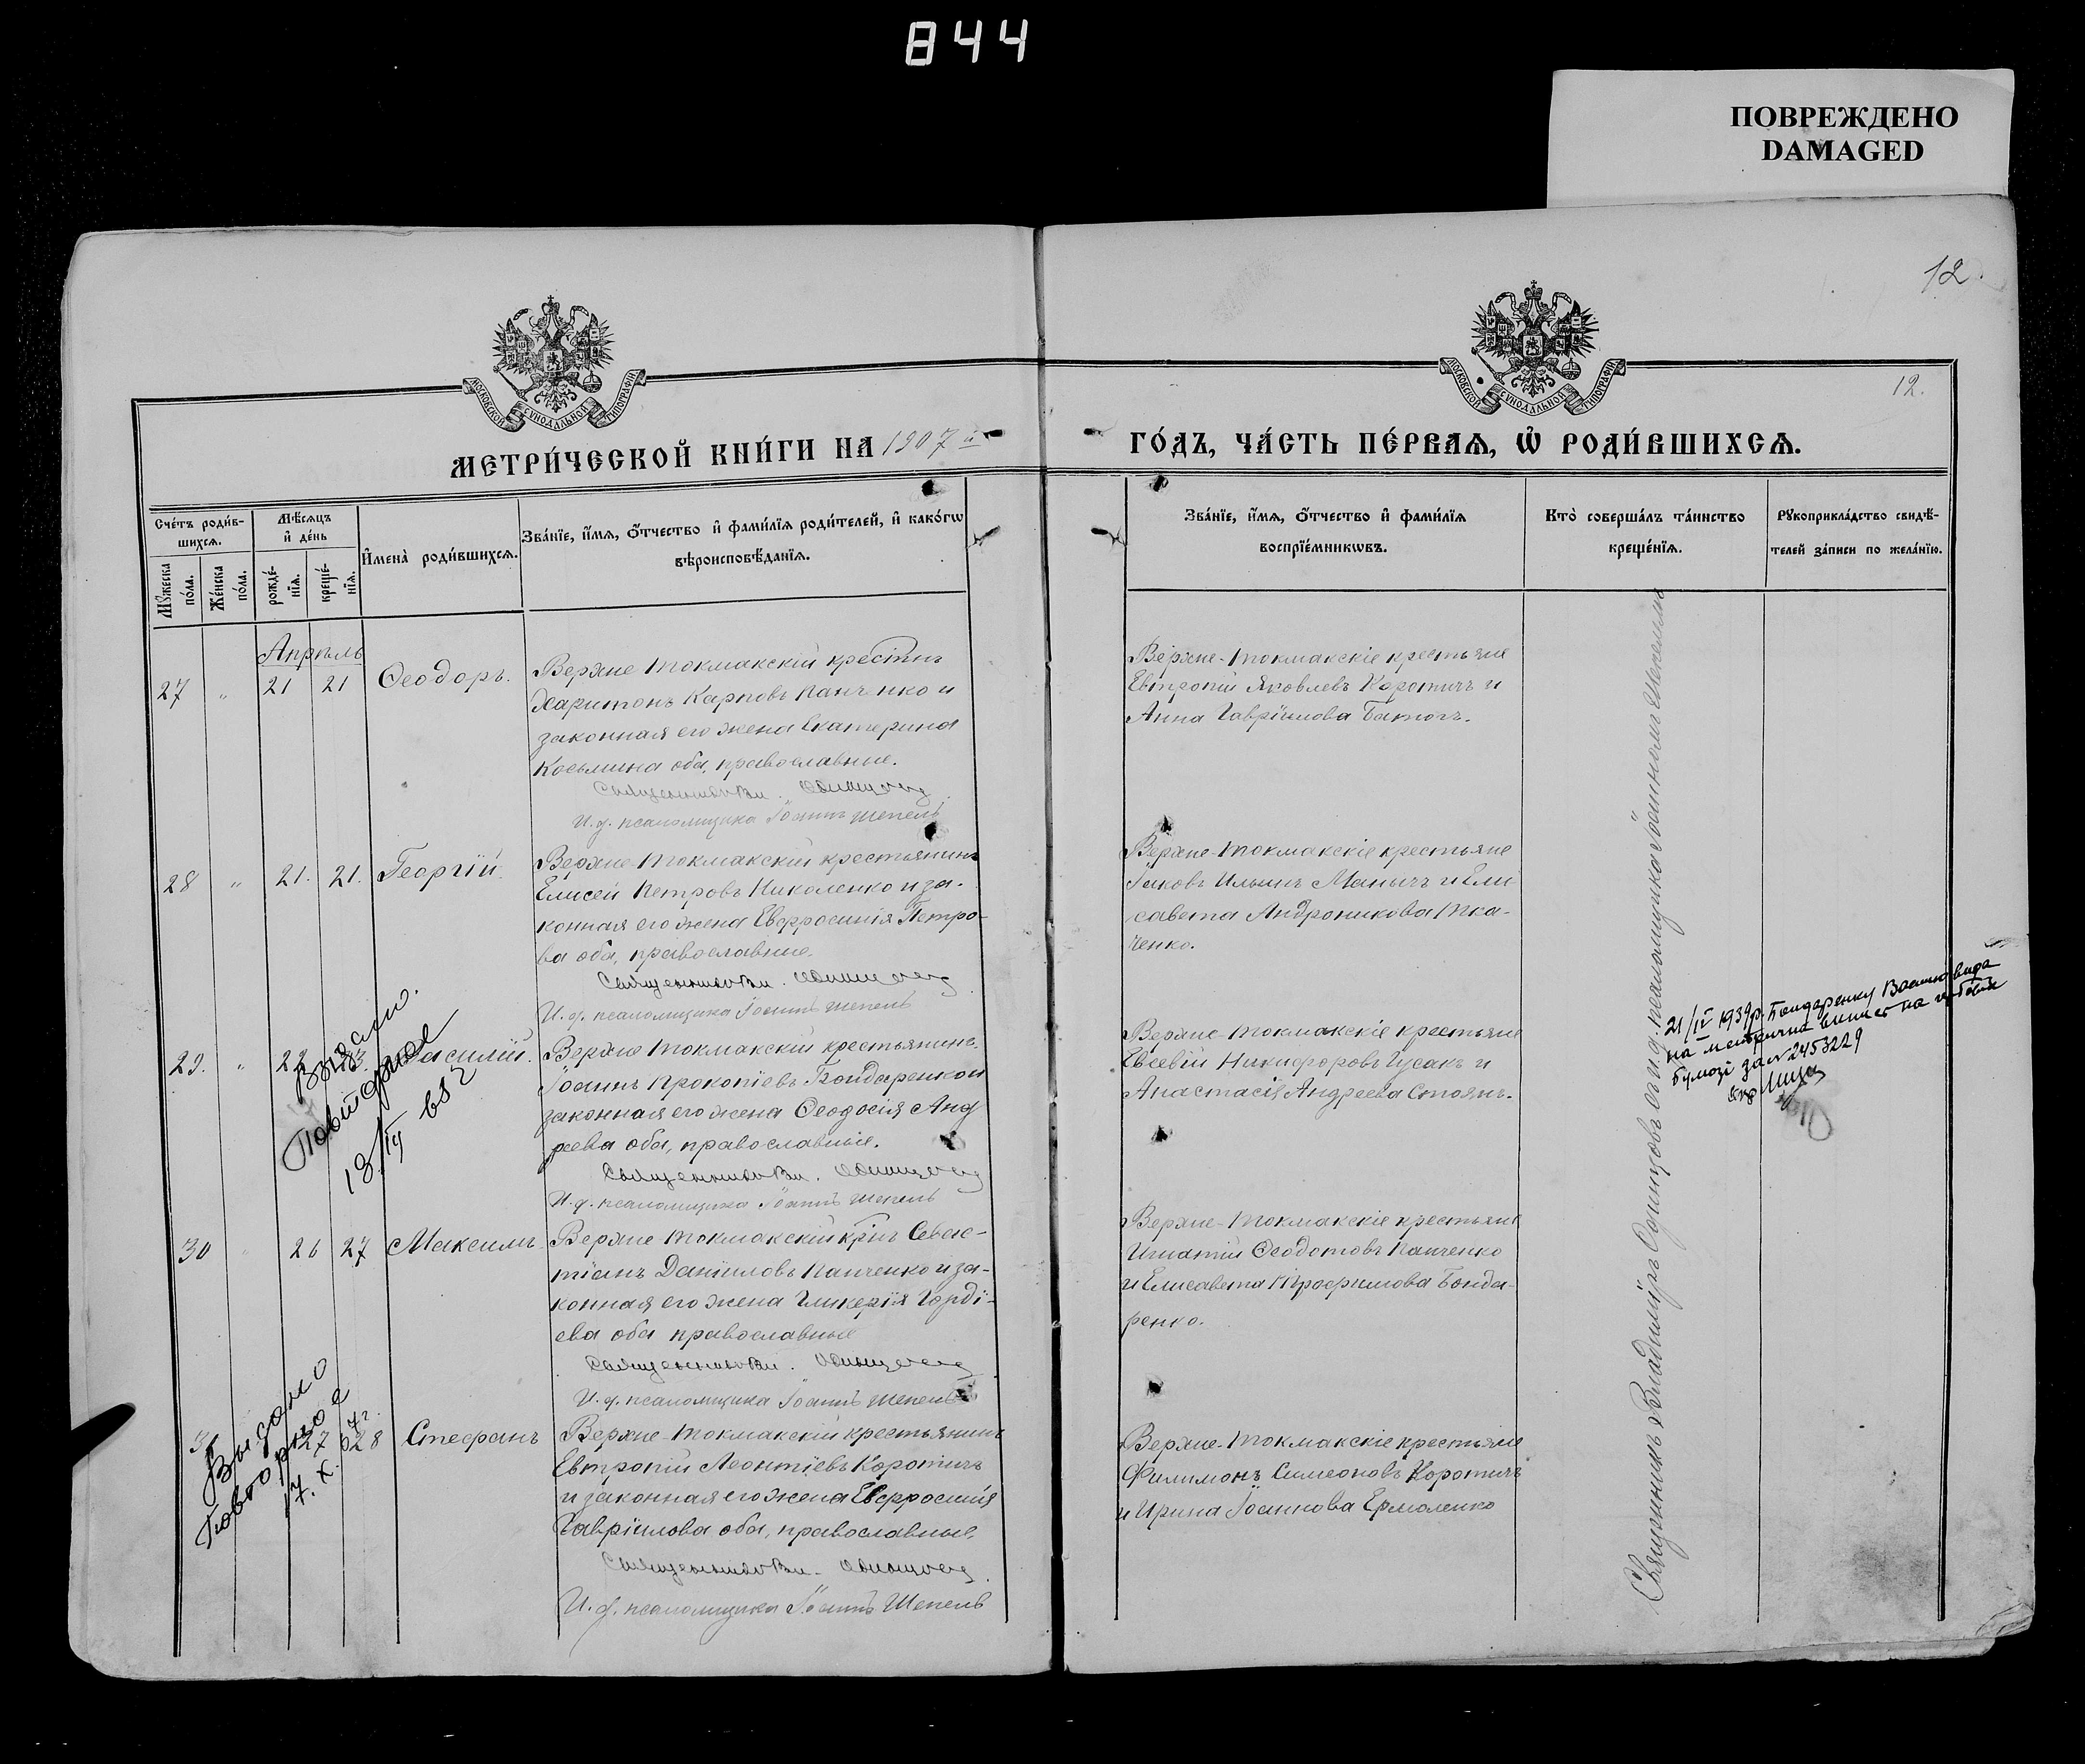 844
ПОВРЕЖДЕНО
DAMAGED
12.
12.
МОСКОВСКОЙ СѴНОДАЛЬНОЙ ТИПОГРАФІИ
МОСКОВСКОЙ СѴНОДАЛЬНОЙ ТИПОГРАФІИ
МЕТРИ́ЧЕСКОЙ КНИ́ГИ НА 1907 й
ГО́ДЪ, ЧА́СТЬ ПЕ́РВАѦ, Ѡ РОДИ́ВШИХСѦ.
Сче́тъ роди́в-
шихсѧ.
Мꙋ́жеска
по́ла.
Же́нска
по́ла.
Мѣ́сѧцъ
и҆ де́нь
рожде́-
нїѧ.
креще́-
нїѧ.
И҆мена̀ роди́вшихсѧ.
Зва́нїе, и҆́мѧ, ѻ҆́тчество и҆ фами́лїѧ роди́телей, и҆ како́гѡ
вѣроисповѣ́данїѧ.
Зва́нїе, и҆́мѧ, ѻ҆́тчество и҆ фами́лїѧ
воспрїе́мникѡвъ.
Кто̀ соверша́лъ та́инство
креще́нїѧ.
Рꙋкоприкла́дство свидѣ́-
телей за́писи по жела́нїю.
Апрѣль
27 " 21 21 Ѳеодоръ.
Верхне Токмакскій крестнъ
Харитонъ Карповъ Панченко и
законная его жена Екатерина
Косьмина оба, православные.
Священникъ Вл. Одинцовъ
И. д. псаломщика Іоаннъ Шепель
Верхне-Токмакскіе крестьяне
Евтропій Яковлевъ Коротичъ и
Анна Гавріилова Батогъ.
28 " 21. 21. Георгій.
Верхне-Токмакскій крестьянинъ
Елисей Петровъ Николенко и за-
конная его жена Евфросинія Петро-
ва оба, православные.
Священникъ Вл. Одинцовъ
И. д. псаломщика Іоаннъ Шепель
Верхне-Токмакскіе крестьяне
Іаковъ Ильинъ Манычъ и Ели
савета Андроникова Тка-
ченко.
29. " 22 23 Василій.
Верхне Токмакскій крестьянинъ
Іоаннъ Прокопіевъ Бондаренко и
законная его жена Ѳеодосія Анд
реева оба, православные.
Священникъ Вл. Одинцовъ
И. д. псаломщика Іоаннъ Шепель
Верхне-Токмакскіе крестьяне
Евсевій Никифоровъ Гусакъ и
Анастасія Андреева Стоянъ.
Повторное
18/IV
21/IV 1939р. Бондаренку Василю видa
на метричний випис на гербовій
бумозі за № 2453229
30 " 26 27 Максимъ
Верхне Токмакскій кр-нъ Севас-
тіанъ Даніиловъ Панченко и за-
конная его жена Гликерія Горді-
ева оба православные
Священникъ Вл. Одинцовъ
И. д. псаломщика Іоаннъ Шепель
Верхне-Токмакскіе крестьяне
Игнатій Ѳеодотовъ Панченко
и Елисавета Трофимова Бонда-
ренко.
31 27 28 Стефанъ
Верхне-Токмакскій крестьянинъ
Евтропій Леонтіевъ Коротичъ
и законная его жена Евфросинія
Гавріилова оба, православные.
Священникъ Вл. Одинцовъ
И. д. псаломщика Іоаннъ Шепель
Верхне-Токмакскіе крестьяне
Филимонъ Симеоновъ Коротичъ
и Ирина Іоаннова Ермоленко
Выдано
Повторное
17. X.
Священникъ Владиміръ Одинцовъ съ и. д. псаломщика Іоанномъ Шепелемъ